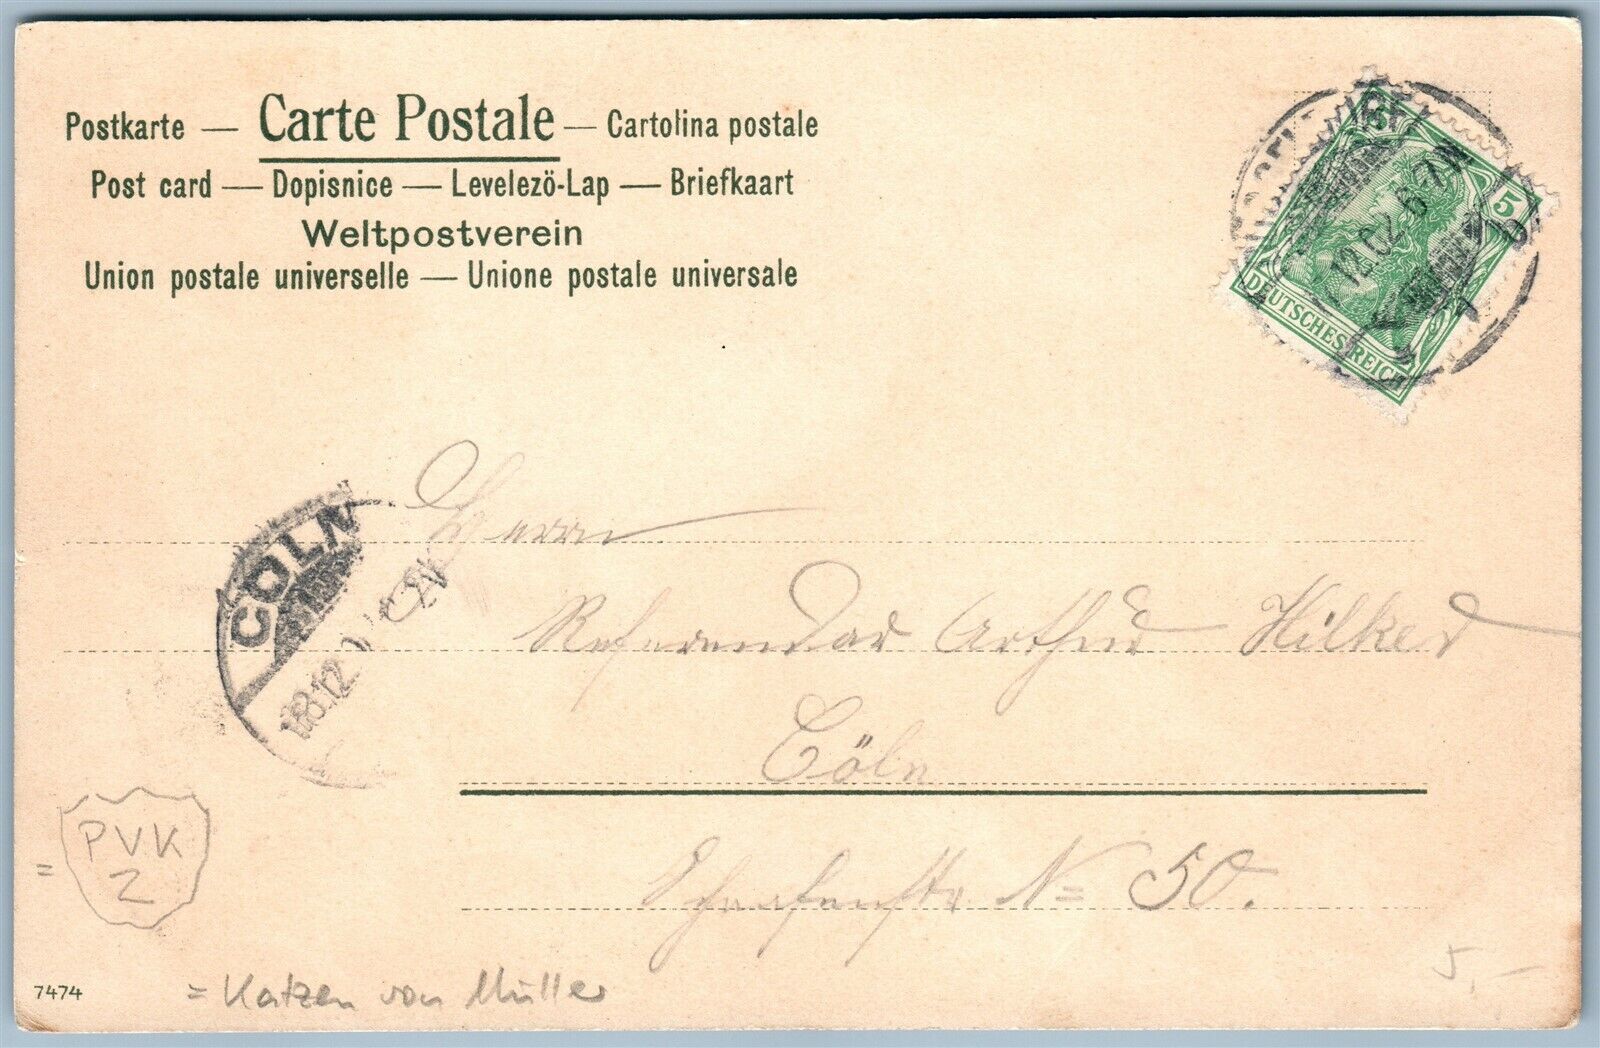 Postkarte — Carte Postale — Cartolina postale
Post card — Dopisnice — Levelezö-Lap — Briefkaart
Weltpostverein
Union postale universelle — Unione postale universale
5
12 02 6-7N
DEUTSCHES REICH
CÖLN
Herrn
Referendar Arthur Hilker
Cöln
N= 50.
= PVK
2
7474
= Katzen von Müller
5,—